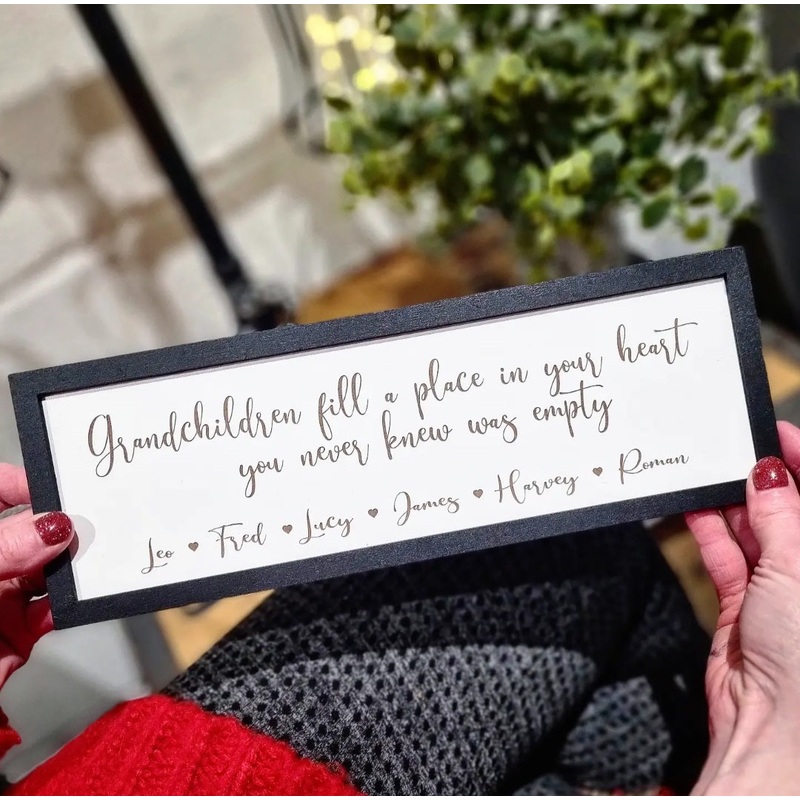 Grandchildren fill a place in your heart
you never knew was empty
Leo ♥ Fred ♥ Lucy ♥ James ♥ Harvey ♥ Roman